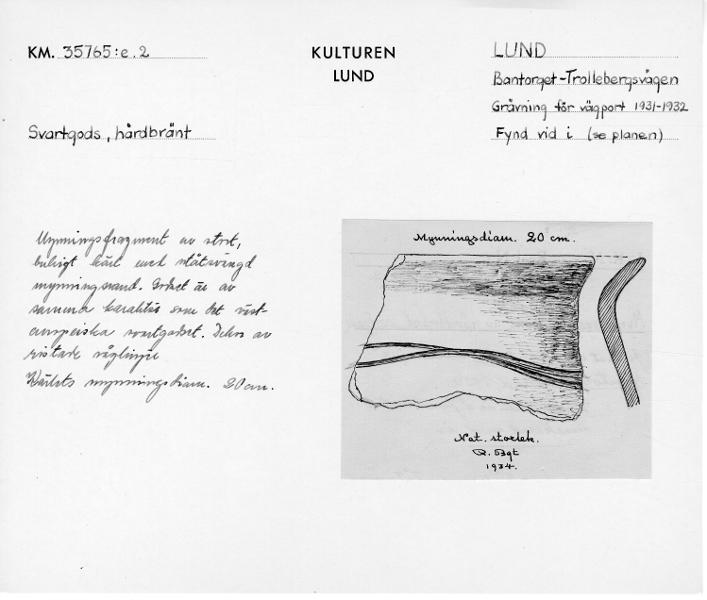 KM. 35765:e.2
KULTUREN
LUND
LUND
Bantorget-Trollebergsvägen
Grävning för vägport 1931-1932
Fynd vid i (se planen)
Svartgods, hårdbränt
Mynningsfragment av stort,
bukigt kärl med utåtsvängd
mynningsrand. Godset är av
samma karaktär som det väst-
europeiska svartgodset. Dekor av
ristade våglinjer
Kärlets mynningsdiam. 20 cm.
Mynningsdiam. 20 cm.
Nat. storlek.
1934.